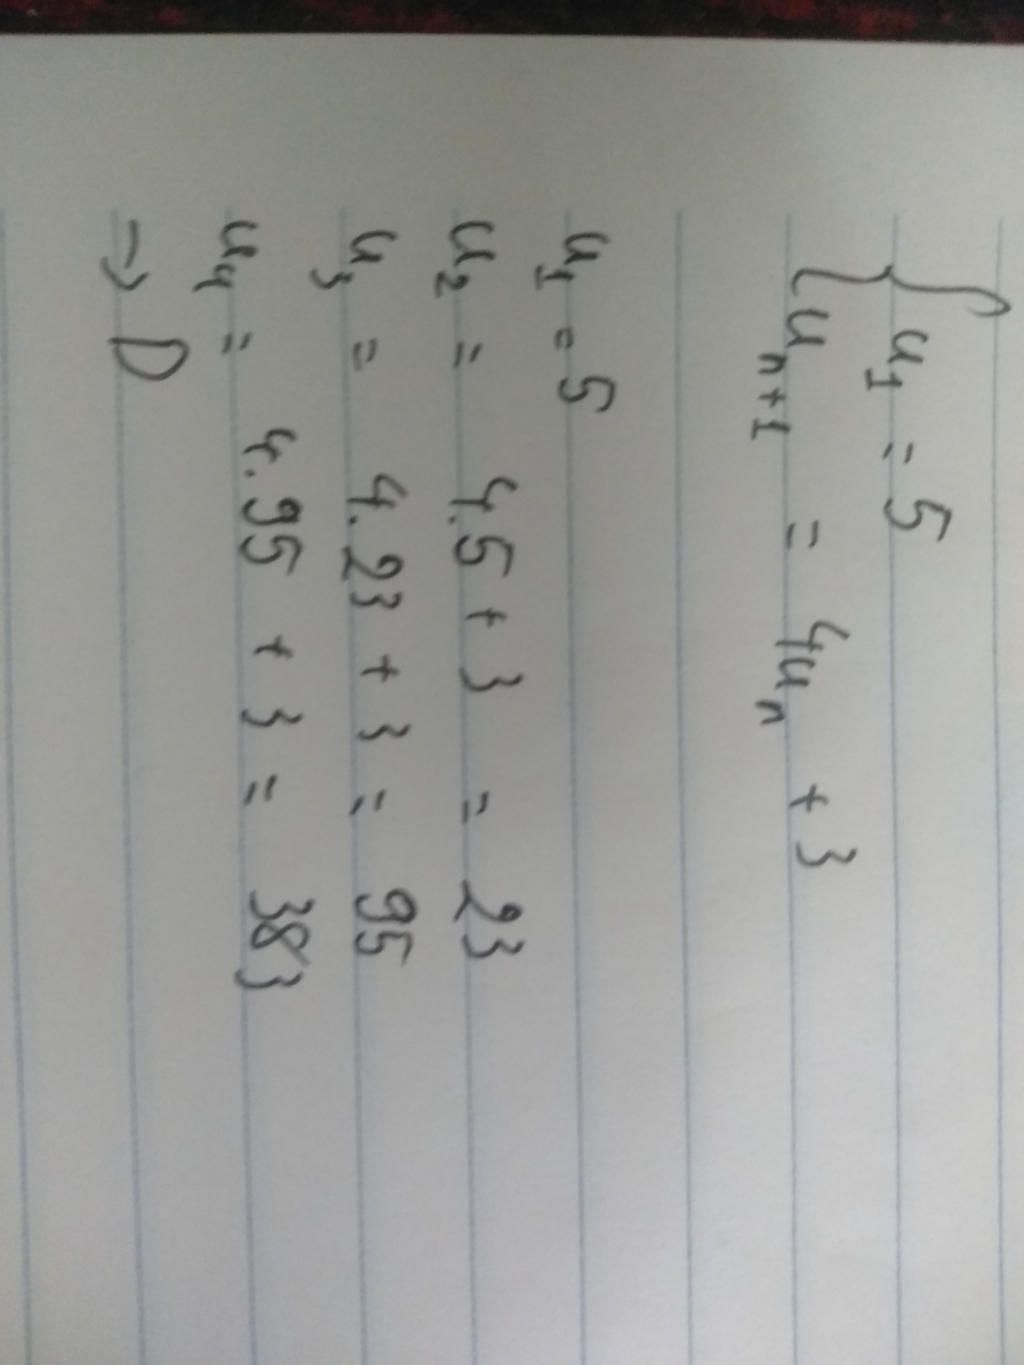 { u₁ = 5
{ uₙ₊₁ = 4uₙ + 3
u₁ = 5
u₂ = 4.5 + 3 = 23
u₃ = 4.23 + 3 = 95
u₄ = 4.95 + 3 = 383
→ D